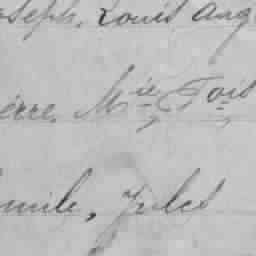 oseph, Louis Aug
ierre, Mie, Fois,
mile, Jules